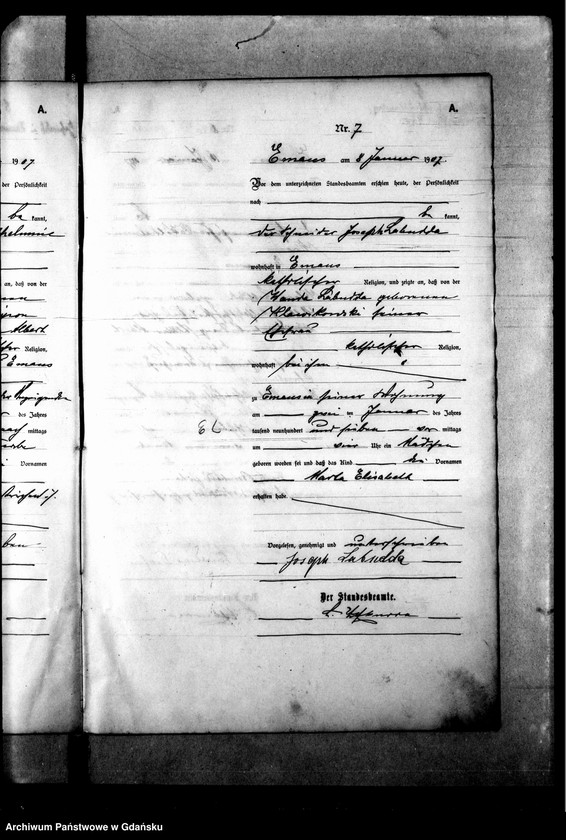 A.
1907
der Persönlichkeit
be kannt,
an, daß von der
Albert
Religion,
Emaus
des Jahres
mittags
Vornamen
A.
Nr. 7
Emaus am 8 Januar 1907.
Vor dem unterzeichneten Standesbeamten erschien heute, der Persönlichkeit
nach
be kannt,
der Schneider Joseph Labudda
wohnhaft in Emaus
katholischer Religion, und zeigte an, daß von der
Wanda Labudda geborenen
Klawikowski seiner
Ehefrau
katholischer Religion,
wohnhaft bei ihm
zu Emaus in seiner Wohnung
am zwei ten Januar des Jahres
tausend neunhundert und sieben vor mittags
um vier Uhr ein Mädchen
geboren worden sei und daß das Kind die Vornamen
Marta Elisabeth
erhalten habe.
Vorgelesen, genehmigt und unterschrieben
Joseph Labudda
Der Standesbeamte.
Archiwum Państwowe w Gdańsku